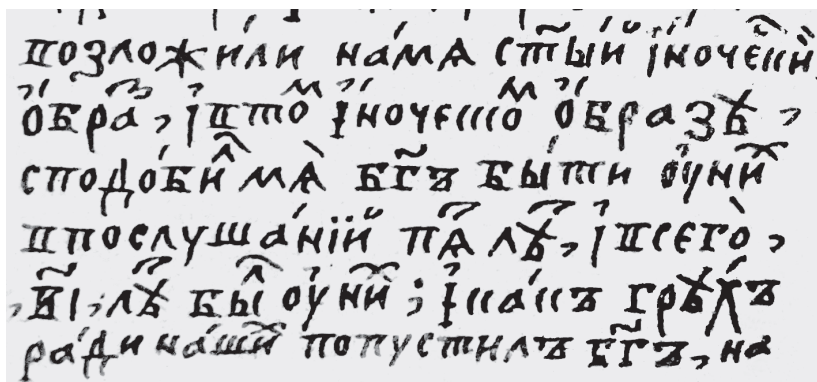 возложи́ли на́мѧ ст҃ы́й і҆ночеⷭ҇кїй
о҆́браⷥ, і҆втоⷨ і҆ноческоⷨ о҆́бразѣ,
сподо́биⷧ мѧ̀ бг҃ъ бы́ти оу҆ниⷯ
впослуша́нїй пѧⷮ лѣⷮ, і҆всего̀,
в҃і, лѣⷮ быⷧ оу҆ниⷯ; і҆ка́къ грѣ́хъ
ра́ди на́шиⷯ попустилъ бг҃ъ, на